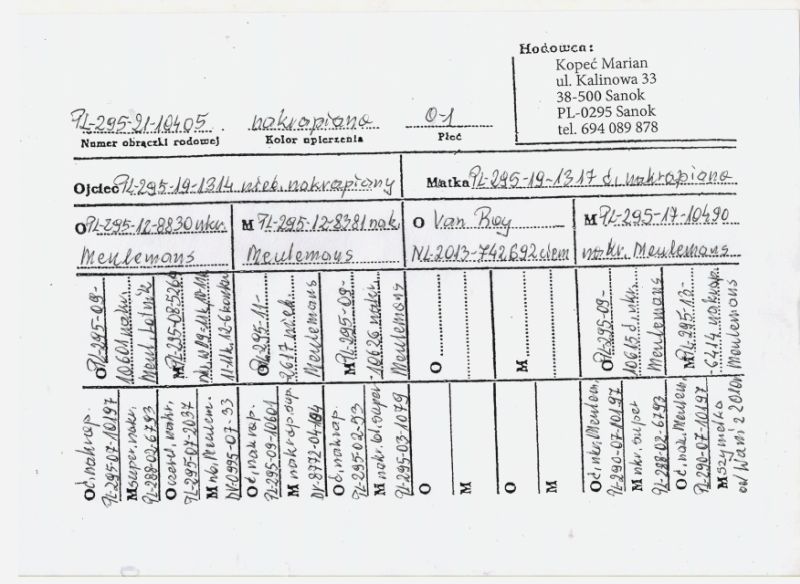 Hodowca:
Kopeć Marian
ul. Kalinowa 33
38-500 Sanok
PL-0295 Sanok
tel. 694 089 878
PL-295-21-10405 nakrapiana 0-1
Numer obrączki rodowej Kolor upierzenia Płeć
Ojciec PL-295-19-1314 nieb. nakrapiany Matka PL-295-19-1317 c. nakrapiana
O PL-295-12-8830 nkr. M PL-295-12-8381 nak. O Van Roy M PL-295-17-10490
Meulemans Meulemans NL-2013-742692 ciem nkr. Meulemans
O PL-295-09-
10601 nakr.
Meul. Lotnik
M PL-295-08-5269
O PL-295-11-
2617 nieb.
Meulemans
M PL-295-09-
-10626 nakr.
Meulemans
O
M
O PL-295-09-
10615 c. nkr.
Meulemans
M PL-295-13-
-6414 nakrap.
Meulemans
O c. nakrap.
PL-295-07-10197
M super. nakr.
PL-288-02-6793
O czerw. nakr.
PL-295-07-2037
M nb. Meulem.
DV-0995-07-33
O nakrap.
PL-295-09-10601
M nakrap. sup.
DV-8772-04-194
O c. nakrap.
PL-295-02-53
M nakr. bl. super
PL-295-03-1079
O
M
O
M
O c. nkr. Meulem.
PL-290-07-10197
M nkr. super
PL-288-02-6793
O c. nak. Meulem.
PL-290-07-10197
M szymelka
z 2010r